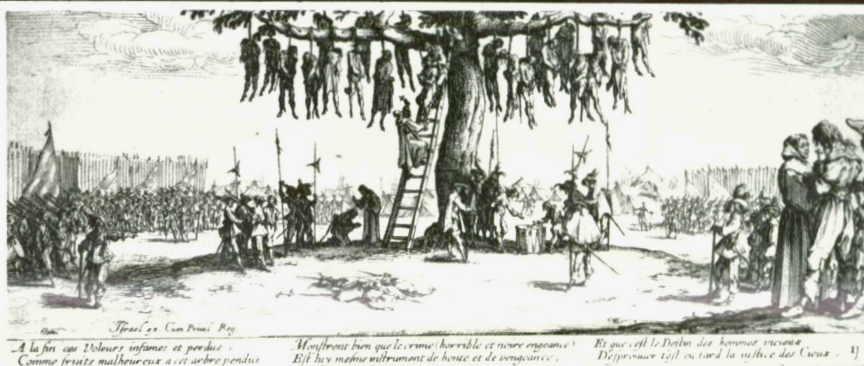 Israel ex. Cum Privil. Reg.
A la fin ces Voleurs infames et perdus,
Comme fruits malheureux a cet arbre pendus
Monstrent bien que le crime (horrible et noire engeance)
Est luy mesme instrument de honte et de vengeance,
Et que c'est le Destin des hommes vicieux
D'esprouver tost ou tard la iustice des Cieux.
11